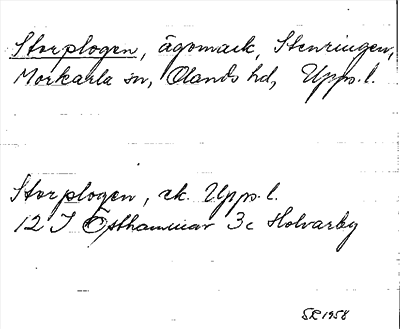 Storplogen, ägomark, Stenringen,
Morkarla sn, Olands hd, Upps. l.
Storplogen, ek. Upps. l.
12 I Östhammar 3c Holvarby
SR 1958